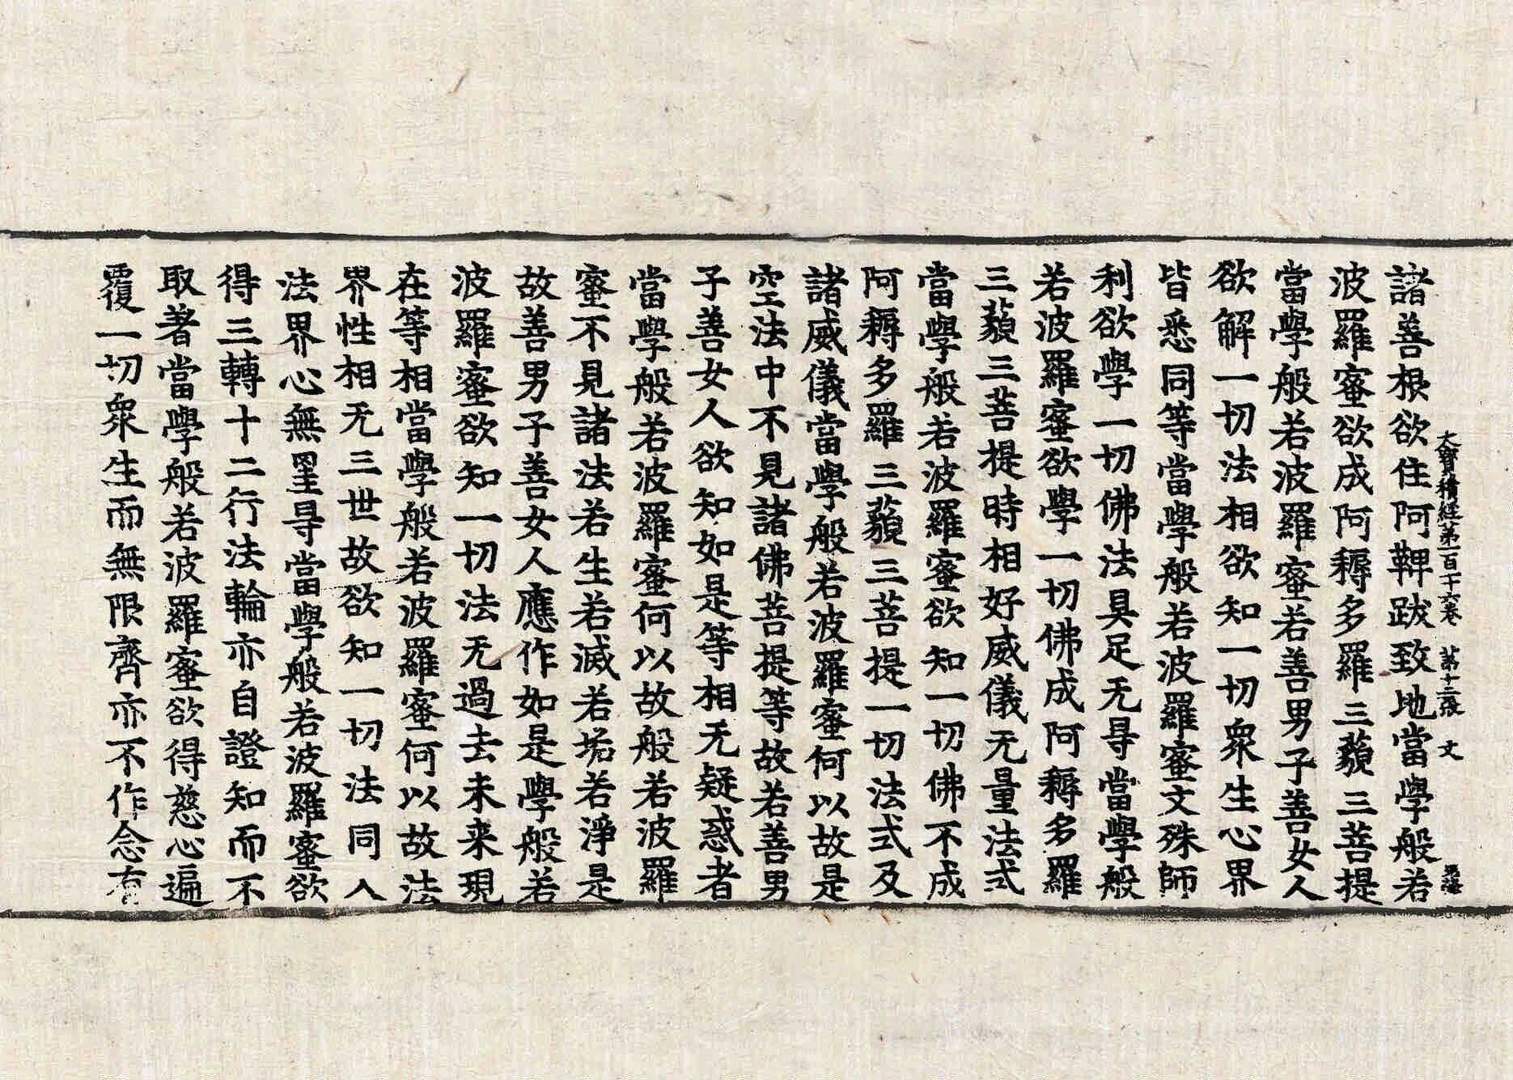 大寶積經第一百十六卷 第十二張 文
諸善根欲住阿鞞跋致地當學般若
波羅蜜欲成阿耨多羅三藐三菩提
當學般若波羅蜜若善男子善女人
欲解一切法相欲知一切衆生心界
皆悉同等當學般若波羅蜜文殊師
利欲學一切佛法具足无㝵當學般
若波羅蜜欲學一切佛成阿耨多羅
三藐三菩提時相好威儀无量法式
當學般若波羅蜜欲知一切佛不成
阿耨多羅三藐三菩提一切法式及
諸威儀當學般若波羅蜜何以故是
空法中不見諸佛菩提等故若善男
子善女人欲知如是等相无疑惑者
當學般若波羅蜜何以故般若波羅
蜜不見諸法若生若滅若垢若淨是
故善男子善女人應作如是學般若
波羅蜜欲知一切法无過去未来現
在等相當學般若波羅蜜何以故法
界性相无三世故欲知一切法同入
法界心無罣㝵當學般若波羅蜜欲
得三轉十二行法輪亦自證知而不
取著當學般若波羅蜜欲得慈心遍
覆一切衆生而無限齊亦不作念有